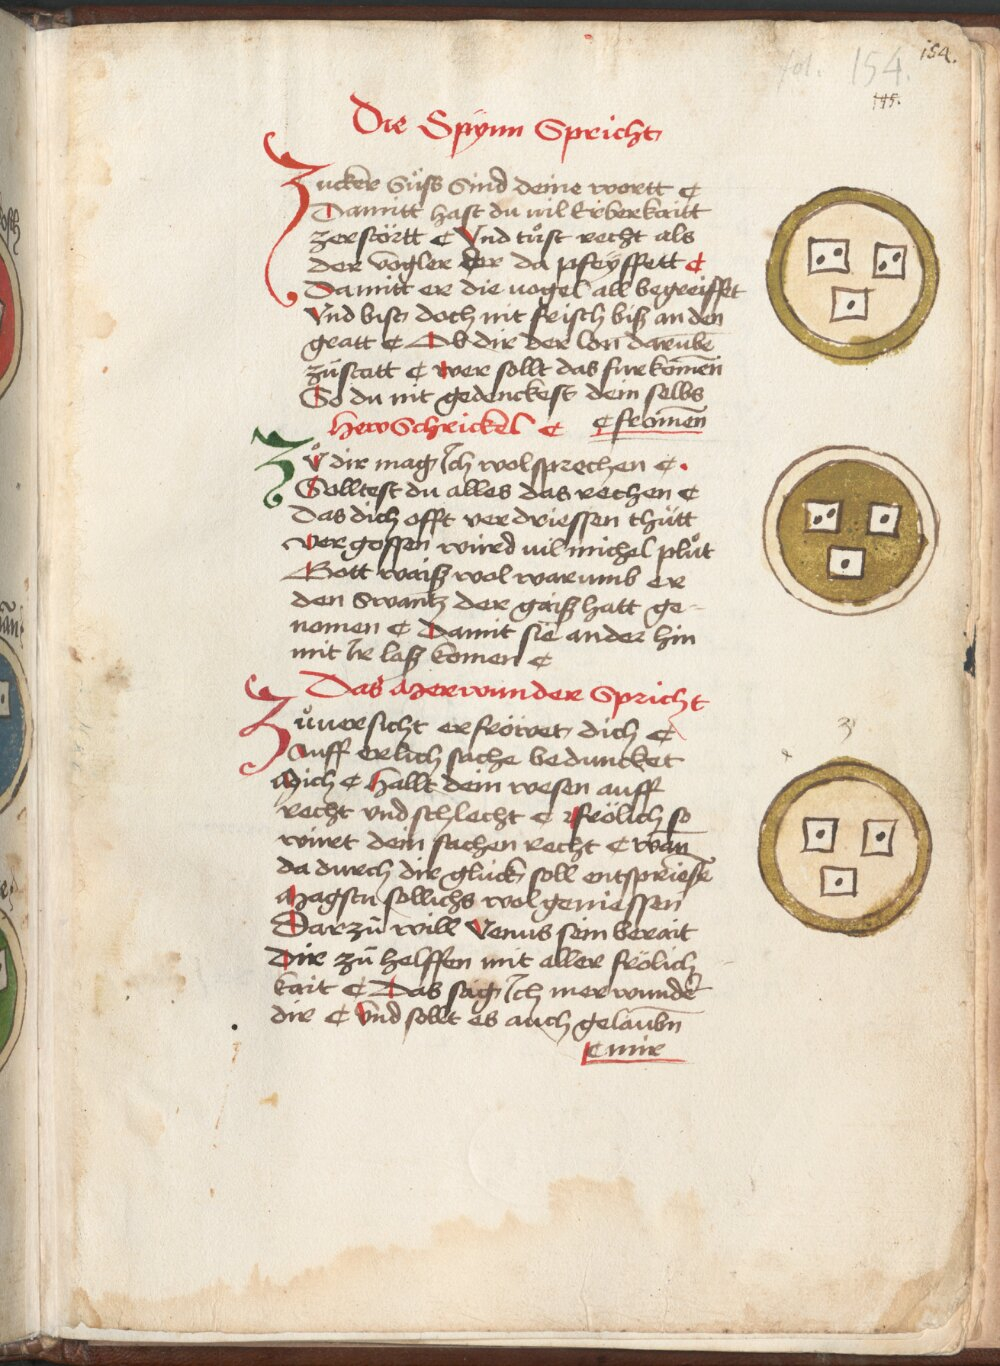 fol. 154. 154.
145.
Die Spynn Spricht
Zucker Süss Sind deine wortt ¢
Damitt hast du uil Erberkaitt
zerstörtt ¢ Vnd tůst recht als
der vogler der da pfeyffett ¢
Damitt er die uogel all begreiffet
Vnd bist doch nit frisch biß an den
gratt ¢ Ob dir der lon darumbē
zůstatt ¢ wer sollt das furkomēn
So du nit gedenckest dein selbs
Herr Schrickel ¢ ¢ fromēn
Zů dir mag Ich wol sprechen ¢
Solltest du alles das rechen ¢
Das dich offt verdriessen thůtt
vergossen würd uil michel plůt
Gott waiß wol warumb er
den Swantz der gaiß hatt ge-
nomen ¢ Damit sie ander hin
mit Ir laß komen ¢
Das Merwunder Spricht
Zůuersicht erfröwet dich ¢
Auff erlich sache beduncket
Mich ¢ Hallt dein wesen auff
recht vnd schlecht ¢ frölich so
wirt dein sachen recht ¢ wān
da durch dir glück soll entspriesē
Magstu sollichs wol geniessen
Darzů will Venus sein berait
Dir zů helffen mit aller frölich
kait ¢ Das sag Ich merwunder
dir ¢ Vnd sollt es auch gelaubn̄
¢ mir